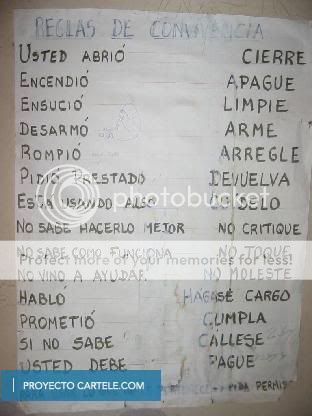 REGLAS DE CONVIVENCIA
USTED ABRIÓ CIERRE
ENCENDIÓ APAGUE
ENSUCIÓ LIMPIE
DESARMÓ ARME
ROMPIÓ ARREGLE
PIDIÓ PRESTADO DEVUELVA
ESTÁ USANDO ALGO CUIDELO
NO SABE HACERLO MEJOR NO CRITIQUE
photobucket
NO SABE COMO FUNCIONA NO TOQUE
Protect more of your memories for less!
NO VINO A AYUDAR NO MOLESTE
HABLÓ HAGASE CARGO
PROMETIÓ CUMPLA
SI NO SABE CALLESE
USTED DEBE PAGUE
PARA PIDA PERMISO
PROYECTO CARTELE.COM